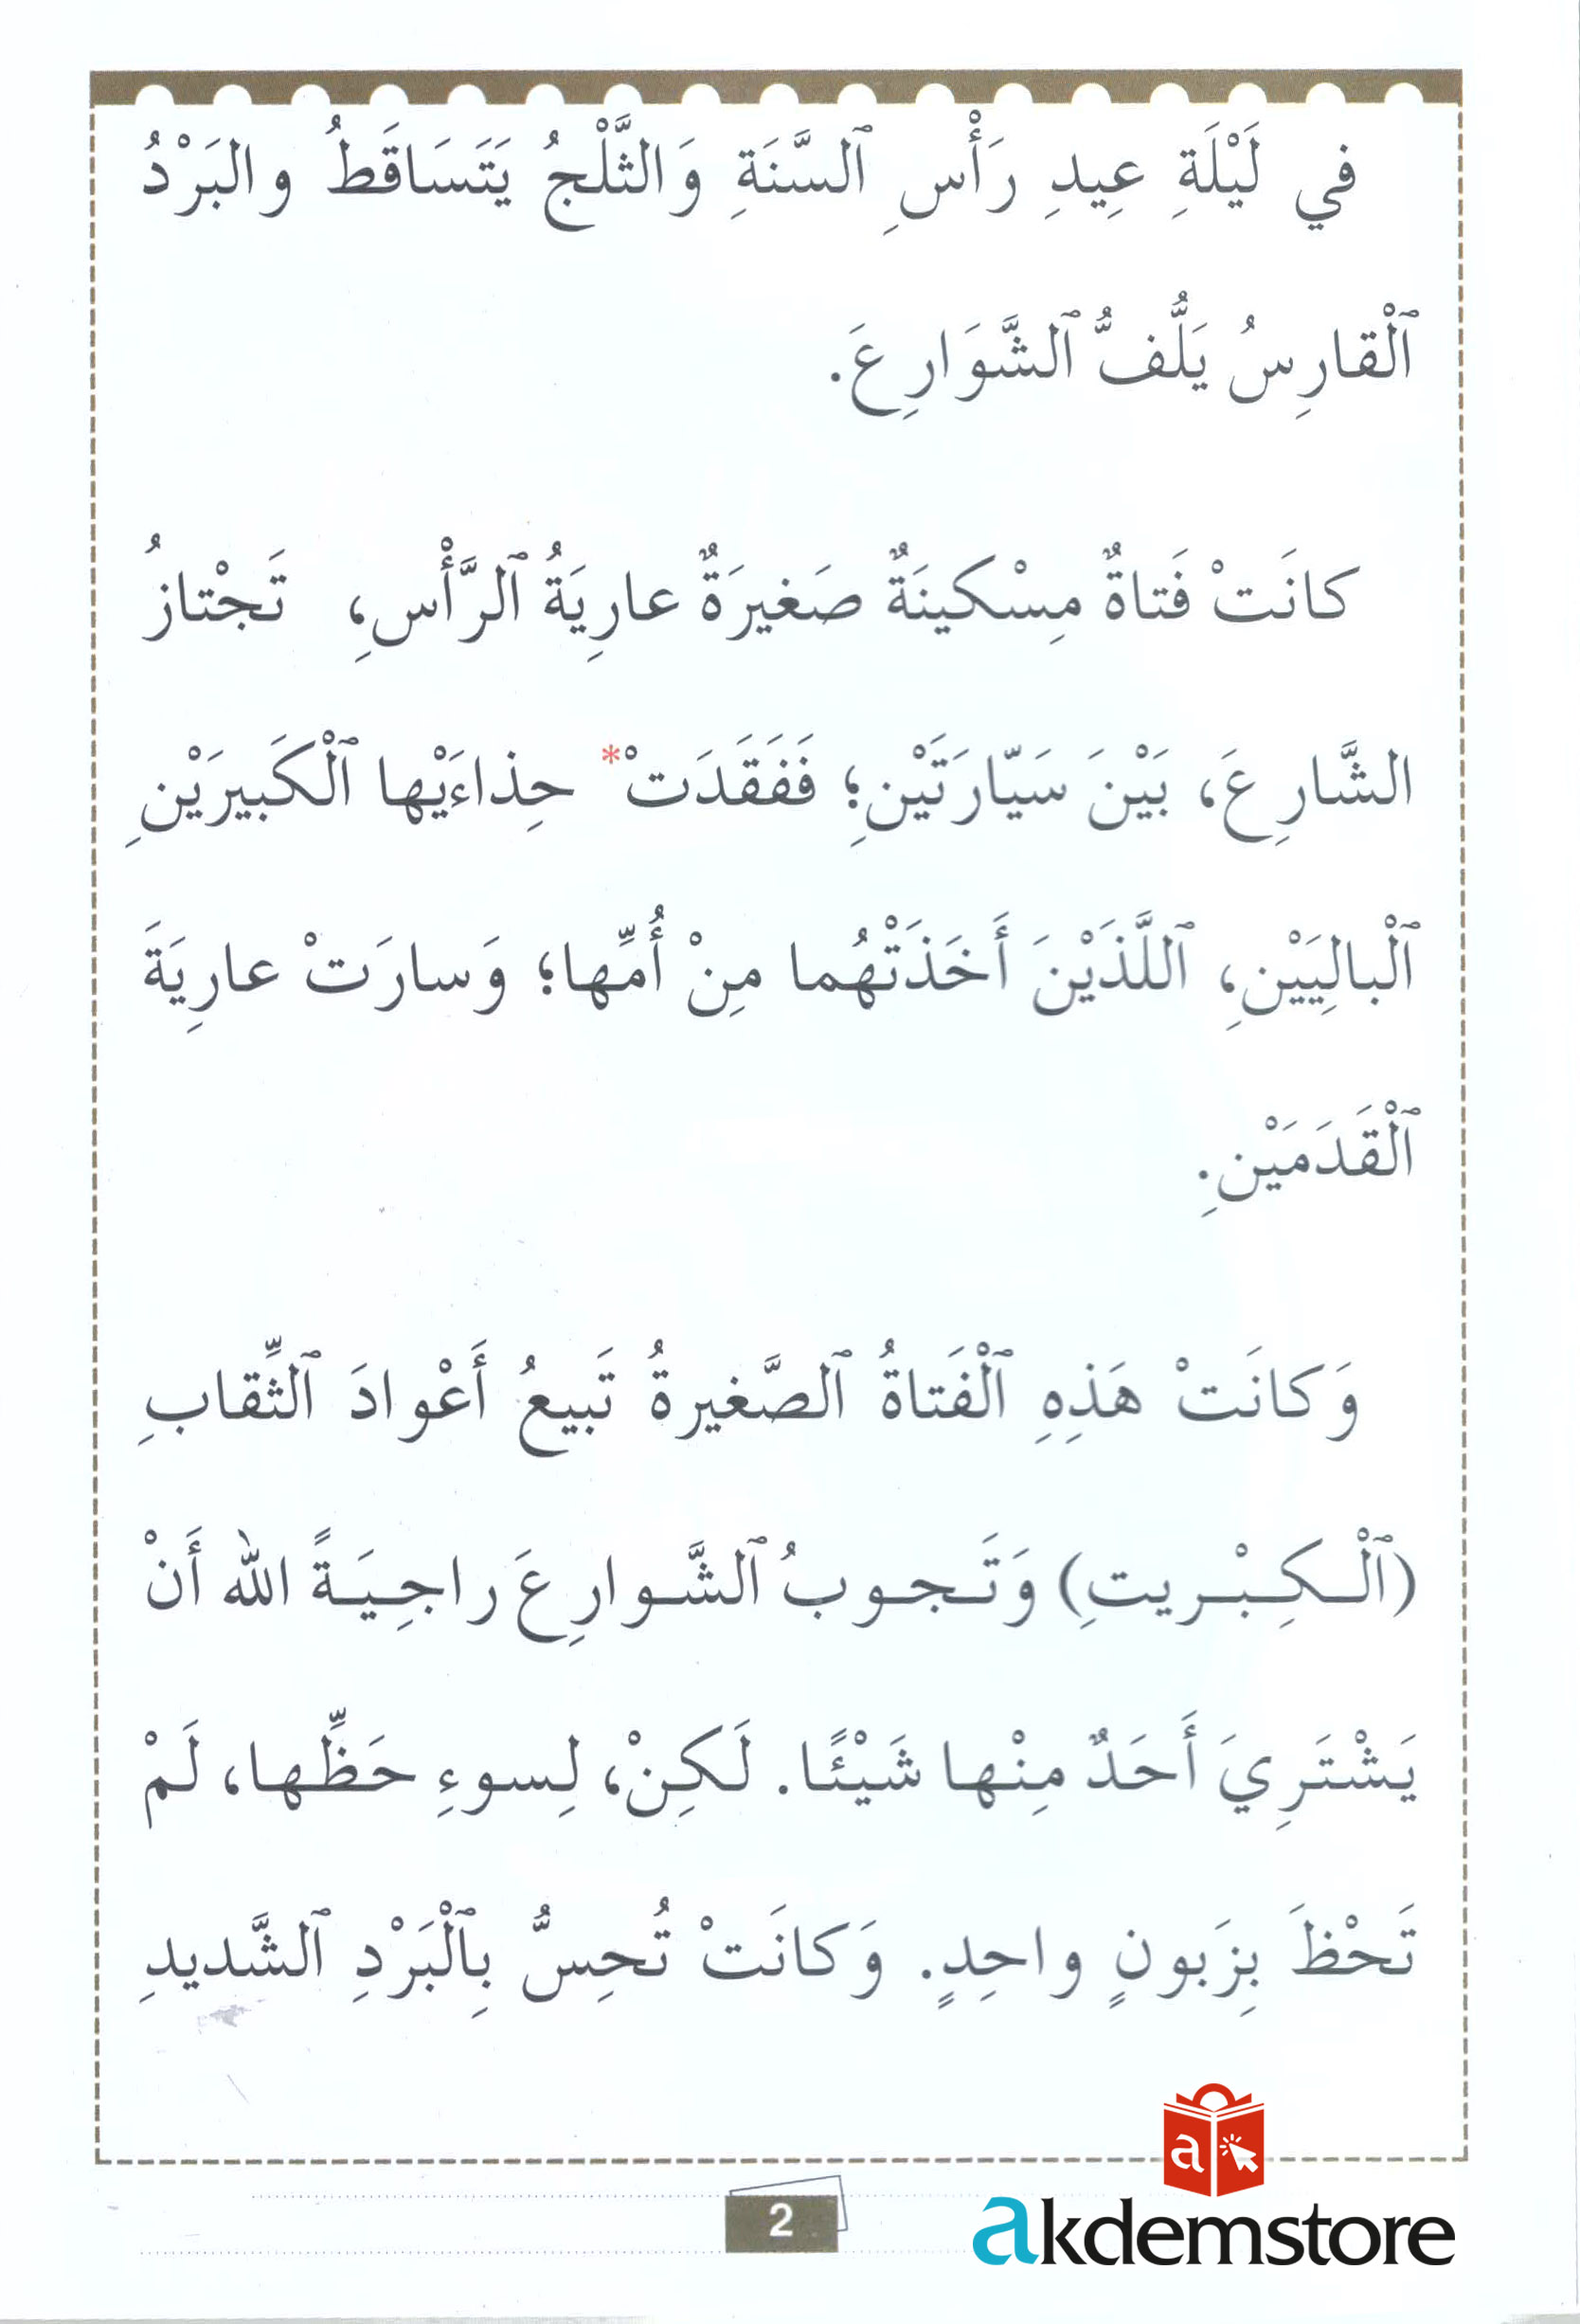 في لَيْلَةِ عِيدِ رَأْسِ ٱلسَّنَةِ وَالثَّلْجُ يَتَسَاقَطُ والبَرْدُ
ٱلْقارِسُ يَلُّفُّ ٱلشَّوَارِعَ.
كانَتْ فَتاةٌ مِسْكينَةٌ صَغيرَةٌ عارِيَةُ ٱلرَّأْسِ، تَجْتازُ
الشَّارِعَ، بَيْنَ سَيّارَتَيْنِ؛ فَفَقَدَتْ* حِذاءَيْها ٱلْكَبيرَيْنِ
ٱلْبالِيَيْنِ، ٱللَّذَيْنَ أَخَذَتْهُما مِنْ أُمِّها؛ وَسارَتْ عارِيَةَ
ٱلْقَدَمَيْنِ.
وَكانَتْ هَذِهِ ٱلْفَتاةُ ٱلصَّغيرةُ تَبيعُ أَعْوادَ ٱلثِّقابِ
(ٱلْكِبْريتِ) وَتَجوبُ ٱلشَّوارِعَ راجِيَةً الله أَنْ
يَشْتَرِيَ أَحَدٌ مِنْها شَيْئًا. لَكِنْ، لِسوءِ حَظِّها، لَمْ
تَحْظَ بِزَبونٍ واحِدٍ. وَكانَتْ تُحِسُّ بِٱلْبَرْدِ ٱلشَّديدِ
2
a
akdemstore